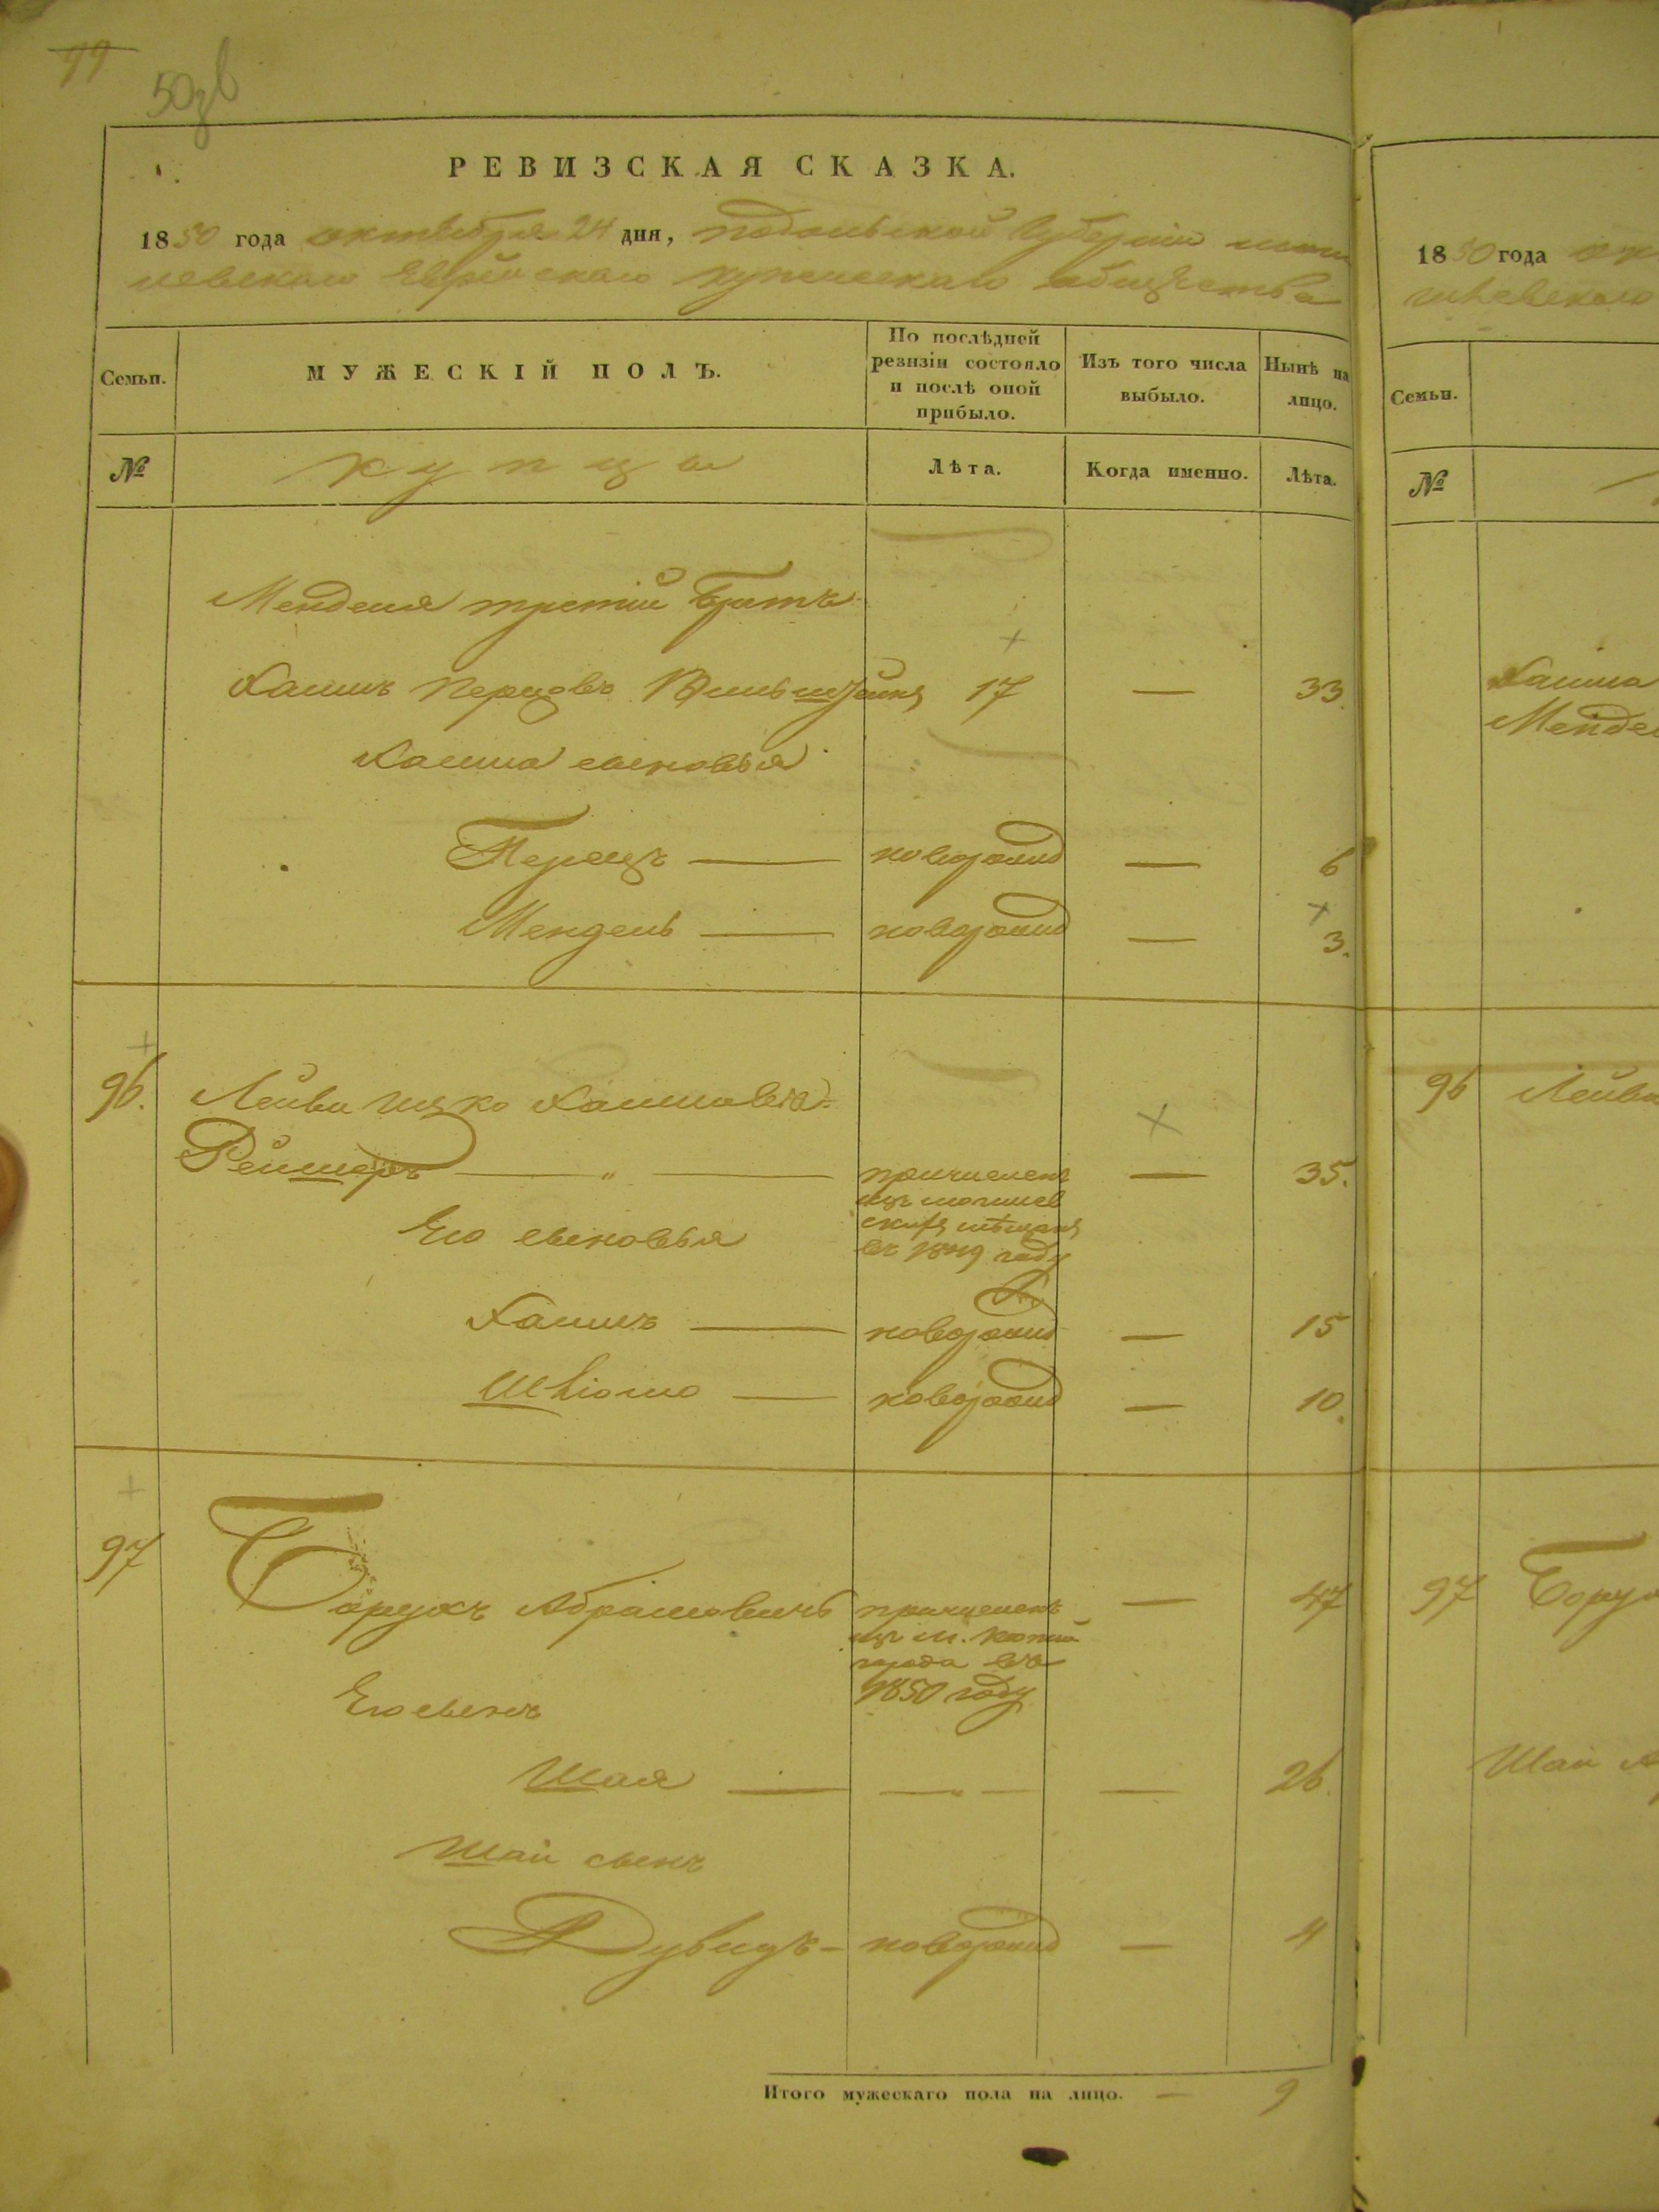 99
50
РЕВИЗСКАЯ СКАЗКА.
1850 года октября 24 дня, подольской Губернии моги
левскаго Еврейскаго купеческаго общества
Семьи.
МУЖЕСКІЙ ПОЛЪ.
По послѣдней ревизіи состояло и послѣ оной прибыло.
Изъ того числа выбыло.
Нынѣ на лицо.
№
купцы
Лѣта.
Когда именно.
Лѣта.
Менделя третий братъ
Хаимъ Перцовъ 17 — 33.
Хаима сыновья
Перецъ — новорожд — 6
Мендель — новорожд — 3.
96. Лейви Ицко Хаимовъ
Рейшеръ — " — причисленъ — 35.
изъ могилев
скихъ мѣщанъ
въ 1849 году
Его сыновья
Хаимъ — новорожд — 15
Шліомо — новорожд — 10.
97 Борухъ Абрамовичъ причисленъ — 47
из м. Копай
города въ
1850 году
Его сынъ
Шая — — " — — 26.
Шаи сынъ
Дувидъ — новорожд — 4
Итого мужескаго пола на лицо. — 9
1850 года
Семьи.
№
Хаима
96 Лейви
97 Борух
Шаи